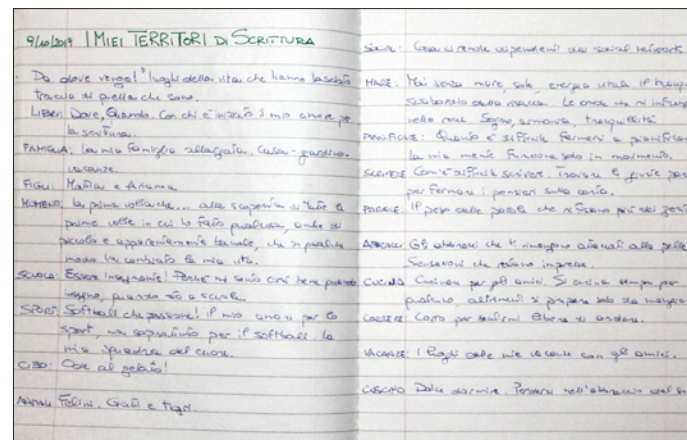 9/10/2019 I MIEI TERRITORI DI SCRITTURA
Da dove vengo? luoghi della vita che hanno lasciato
traccia di quella che sono.
LIBRI: Dove, Quando. Con chi è iniziato il mio amore per
la scrittura.
FAMIGLIA: La mia famiglia allargata. Casa - giardino-
vacanze
FIGLI: Mattia e Arianna
MOMENTI: La prima volta che... alla scoperta di tutte le
prime volte in cui ho fatto qualcosa, anche di
piccolo e apparentemente banale, che in qualche
modo ha cambiato la mia vita.
SCUOLA: Essere insegnante! Perché mi sento così bene quando
insegno, quando sto a scuola.
SPORT: Softball che passione! il mio amore per lo
sport, ma soprattutto per il softball. La
mia squadra del cuore.
CIBO: Coe al gelato!
ANIMALI Felini. Gatti e tigri.
Cosa ci rende dipendenti dai social network.
MARE: Mai senza mare, sole, energia vitale
Le onde che si infrangono
Sogno, armonia, tranquillità
PIANIFICARE: Quanto è difficile fermarsi a pianificare
la mia mente funziona solo in movimento.
SCRIVERE Com'è difficile scrivere. Trovare le giuste
per fermare i pensieri sulla carta.
PAROLE: Il peso delle parole che a più dei gesti
ABBRACCI: Gli abbracci che ti rimangono attaccati alla pelle
Sensazioni che restano impresse.
CUCINA Cucinare per gli amici. Si cucina sempre per
qualcuno, altrimenti si prepara solo da mangiare
CORRERE Corro per sentirmi libera di andare.
VACANZE: I luoghi delle mie vacanze con gli amici.
CUSCINO Dolce dormire. Perdersi nell'abbraccio del